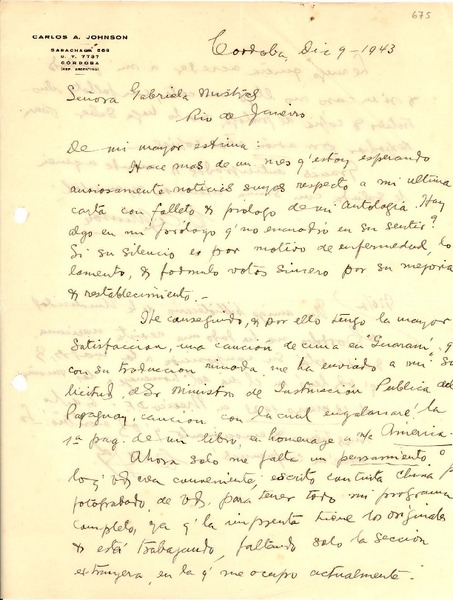 675
CARLOS A. JOHNSON
SARACHAGA 568
U. T. 7737
CÓRDOBA
(REP. ARGENTINA)
Cordoba, Dic 9-1943
Señora Gabriela Mistral
Rio de Janeiro
De mi mayor estima:
Hace mas de un mes q' estoy esperando
ansiosamente noticias suyas respecto a mi ultima
carta con folleto & prologo de mi Antologia. Hay
algo en mi prólogo q' no encuadró en su sentir?
Si su silencio es por motivo de enfermedad, lo
lamento, & formulo votos sincero por su mejoria
& restablecimiento.-
He conseguido, & por ello tengo la mayor
satisfaccion, una canción de cuna en "Guarani", q'
con su traduccion rimada, me ha enviado a mi so-
licitud, el Sr Ministro de Instrucción Publica del
Paraguay, cancion con la cual engalanaré la
1ª pag. de mi libro, en homenage a America.
Ahora solo me falta un pensamiento o
lo q' vd crea conveniente, escrito con tinta china p'
fotograbado, de vd, para tener todo mi programa
completo, ya q' la imprenta tiene los originales
& está trabajando, faltando solo la sección
extranjera, en la q' me ocupo actualmente.-